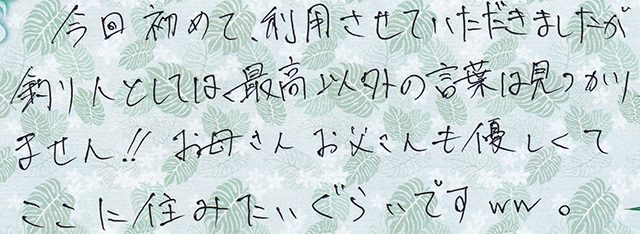 今回初めて、利用させていただきましたが
釣り人としては、最高以外の言葉は見つかり
ません!! お母さんお父さんも優しくて
ここに住みたいぐらいですww。